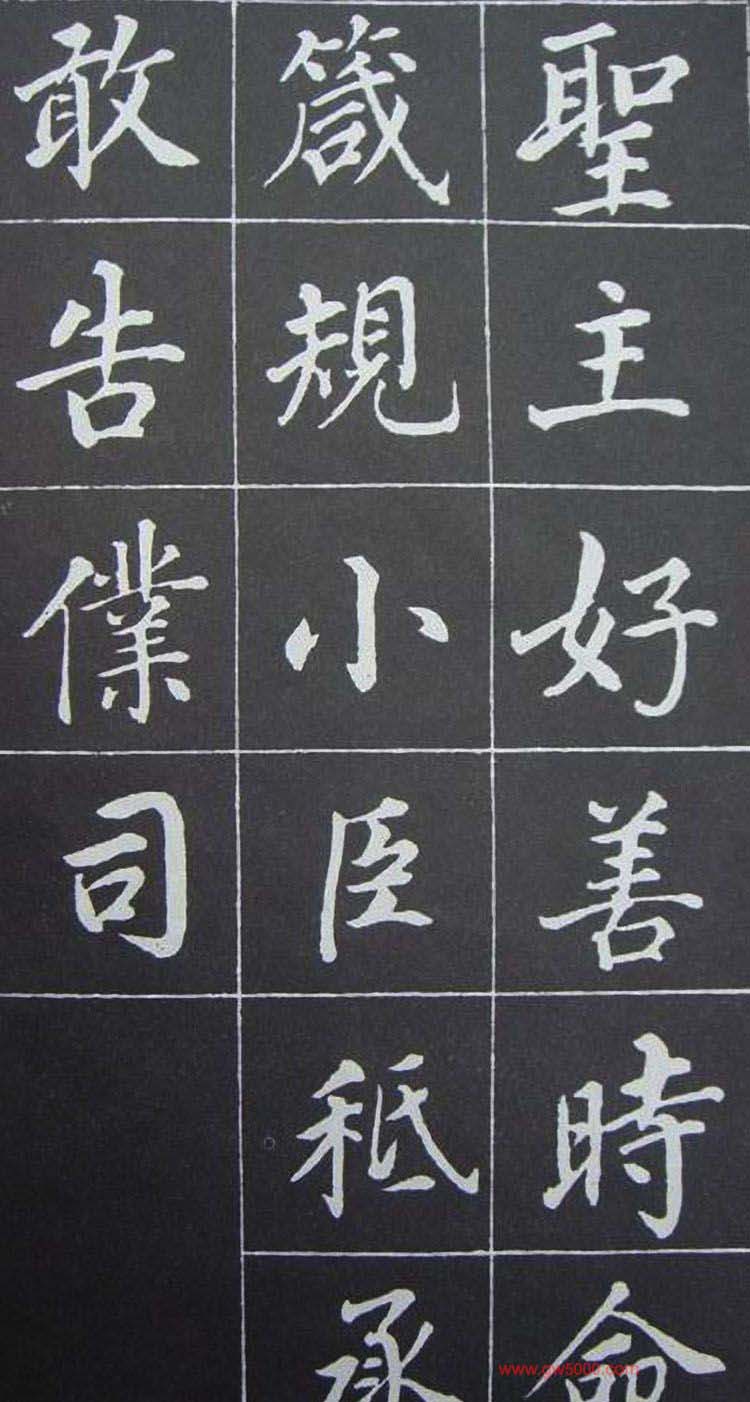 聖主好善時命
箴規小臣秪承
敢告僕司
www.cw5000.com